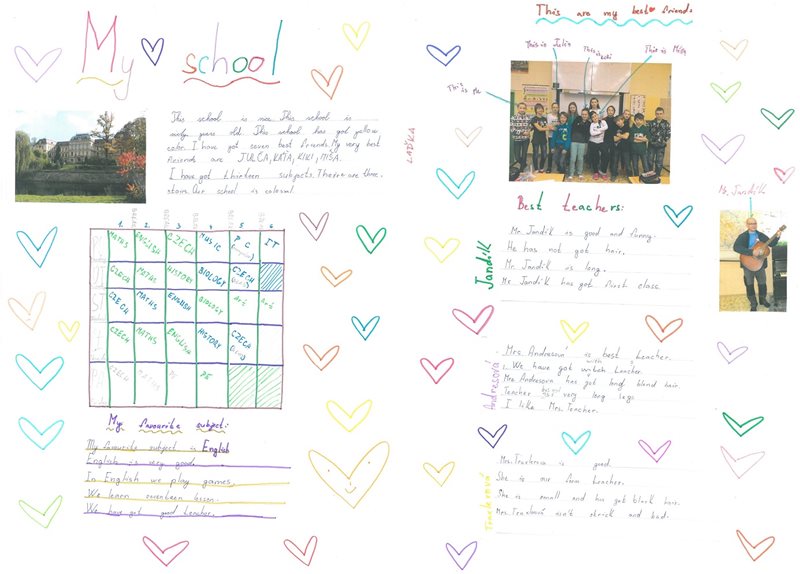 My school
This school is nice. This school is
years old. This school has got yellow
color. I have got seven best friends. My very best
friends are JULČA, KÁŤA, KIKI, MÍŠA.
I have got thirteen subjects. There are three
stairs. Our school is colorful.
1. 2. 3. 4. 5. 6.
MATHS ENGLISH CZECH MUSIC P.C IT
CZECH MATHS HISTORY BIOLOGY CZECH
CZECH MATHS ENGLISH BIOLOGY Art Art
CZECH MATHS ENGLISH HISTORY CZECH
CZECH MATHS PE PE
My favourite subject:
My favourite subject is English
English is very good.
In English we play games.
We learn seventeen lesson.
We have got good teacher.
LADŠKA
This are my best friends
This is Me
This is Julis
This is
This is Míša
Best teachers:
Jandík
Mr. Jandík is good and funny.
He has not got hair.
Mr. Jandík is long.
Mr. Jandík has got first class.
Mr. Jandík
Andresová
Mrs. Andresová is best teacher.
We have got witch teacher.
Mrs. Andresová has got long blond hair.
Teacher has got very long legs
I like Mrs. Teacher.
Mrs. Truxková is good.
She is our form teacher.
She is small and has got black hair.
Mrs. Truxková isn't strick and bad.